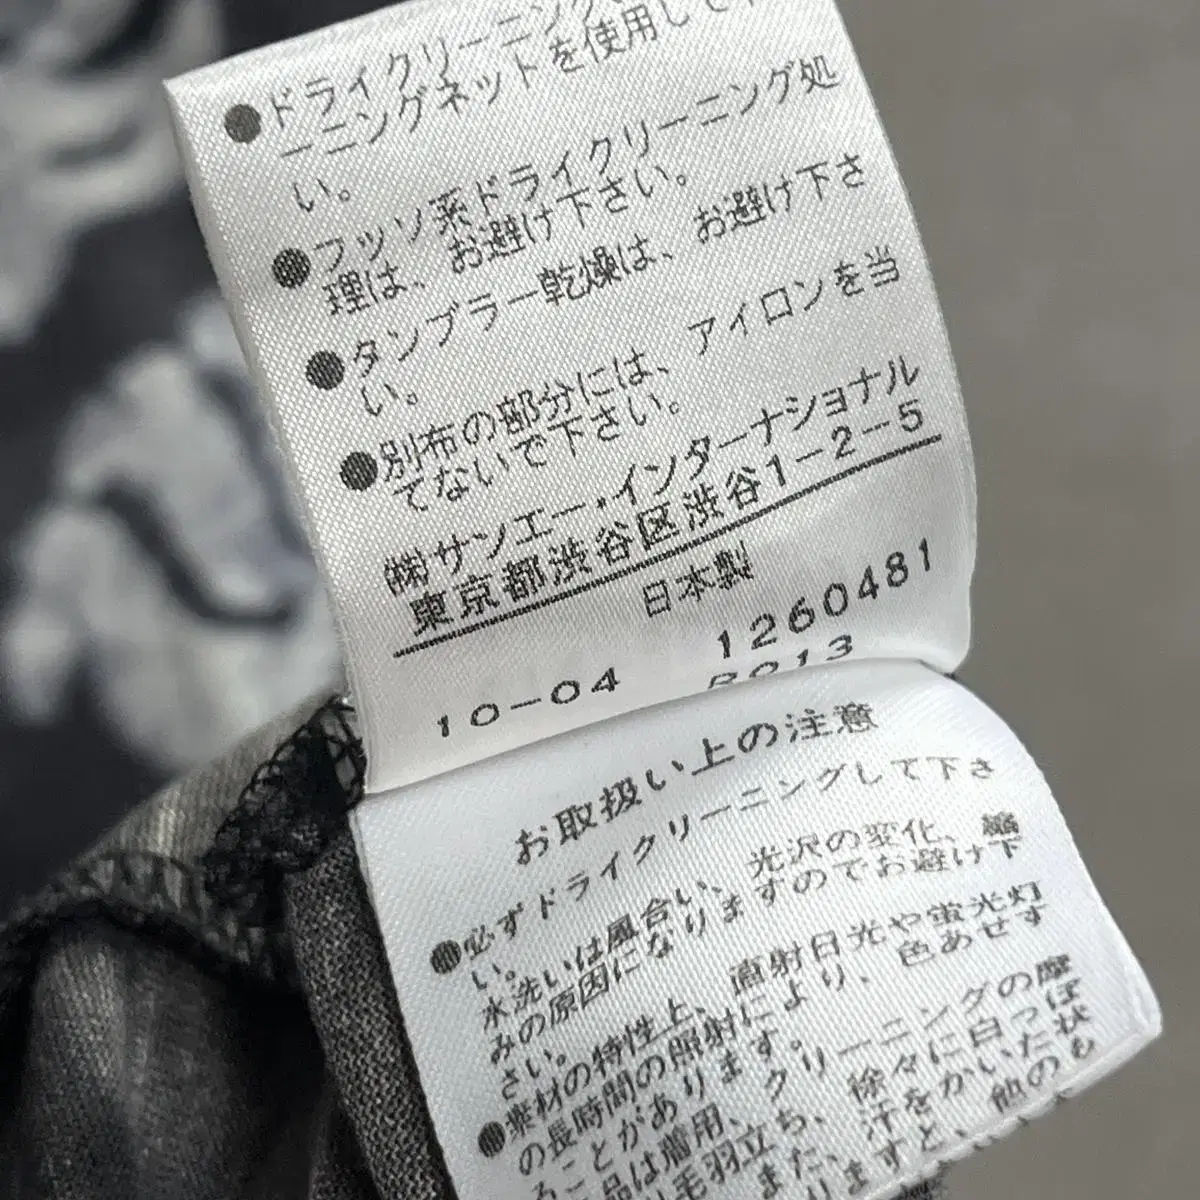 ●ドライクリーニング
ーニングネットを使用して下
い。
●フッソ系ドライクリーニング処
理は、お避け下さい。
●タンブラー乾燥は、お避け下さ
い。
●別布の部分には、アイロンを当
てないで下さい。
㈱サンエー・インターナショナル
東京都渋谷区渋谷1-2-5
日本製
1260481
10-04
R013
お取扱い上の注意
●必ずドライクリーニングして下さ
い。
水洗いは風合い、光沢の変化、縮
みの原因になりますのでお避け下
さい。
●素材の特性上、直射日光や蛍光灯
の長時間の照射により、色あせす
ることがあります。
品は着用、クリーニングの摩
毛羽立ち、徐々に白っぽ
また、汗をかいた状
りますと、他のも